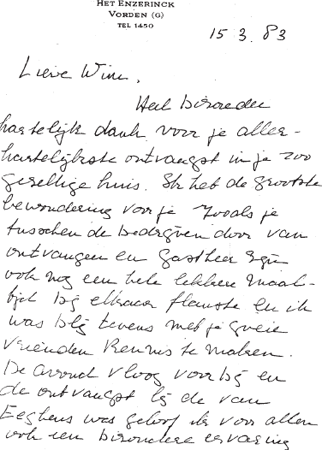 HET ENZERINCK
VORDEN (G)
TEL 1450
15.3.83
Lieve Wim,
Heel bizonder
hartelijk dank voor je aller-
hartelijkste ontvangst in je zoo
gezellige huis. Ik heb de grootste
bewondering voor je zooals je
tusschen de bedrijven door van
ontvangen en gastheer zijn
ook nog een hele lekkere maal-
tijd bij elkaar flanste en ik
was blij tevens met je goeie
vrienden kennis te maken.
De avond vloog voorbij en
de ontvangst bij de van
Eeghens was geloof ik voor allen
ook een bizondere ervaring